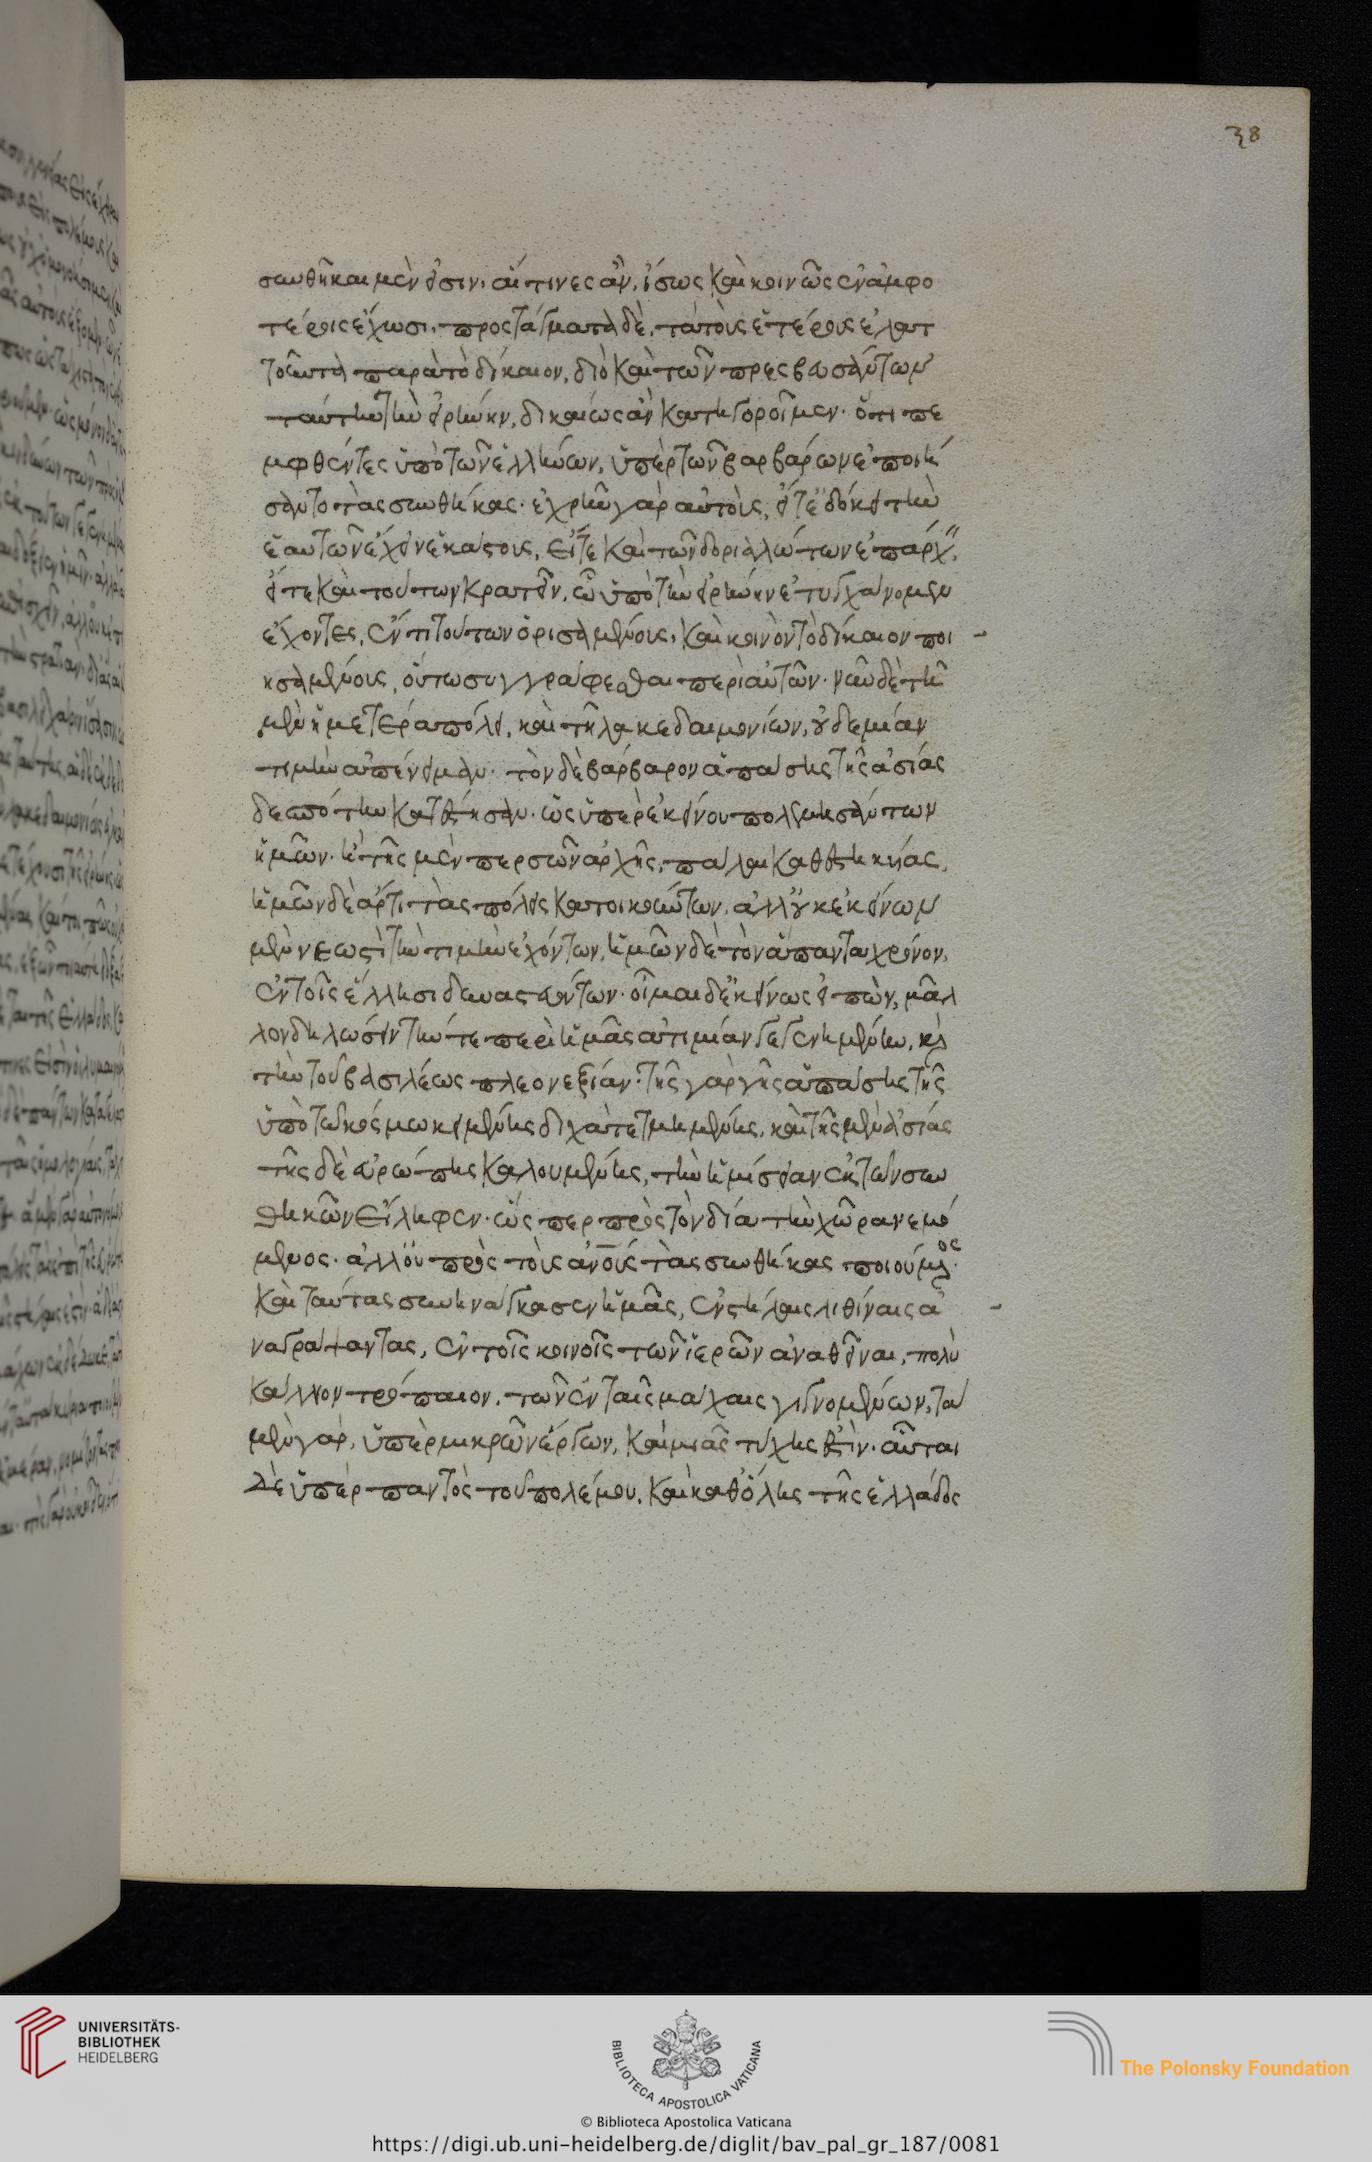 38
συνθῆκαι μὲν εἰσιν, αἵτινες ἂν, ἴσως καὶ κοινῶς ἐν ἀμφο
τέροις ἔχωσι. προστάγματα δὲ, τὰ τοὺς ἑτέρους ἐλατ
τοῦντα παρὰ τὸ δίκαιον, διὸ καὶ τῶν πρεσβευσάντων
ταύτην τὴν εἰρήνην, δικαίως ἂν κατηγοροῖμεν. ὅτι πε
μφθέντες ὑπὸ τῶν ἑλλήνων, ὑπὲρ τῶν βαρβάρων ἐποιή
σαντο τὰς συνθήκας. ἐχρῆν γὰρ αὐτοὺς, εἴτ' ἐδόκει τὴν
ἑαυτῶν ἔχειν ἑκάστοις, εἴτε καὶ τῶν δοριαλώτων ἐπάρχ"
εἴτε καὶ τούτων κρατεῖν, ὧν ὑπὸ τὴν εἰρήνην ἐτυγχάνομεν
ἔχοντες, ἕν τι τούτων ὁρισαμένους, καὶ κοινὸν τὸ δίκαιον ποι
ησαμένους, οὕτω συγγράφεσθαι περὶ αὐτῶν. νῦν δὲ τῇ
μὲν ἡμετέρα πόλει, καὶ τῇ λακεδαιμονίων, οὐδεμίαν
τιμὴν ἀπένειμαν. τὸν δὲ βάρβαρον ἁπάσης τῆς ἀσίας
δεσπότην κατέστησαν. ὡς ὑπὲρ ἐκείνου πολεμησάντων
ἡμῶν. ἢ τῆς μὲν περσῶν ἀρχῆς, πάλαι καθεστηκυίας,
ἡμῶν δὲ ἄρτι τὰς πόλεις κατοικούντων, ἀλλ' οὐκ ἐκείνων
μὲν νεωστὶ τὴν τιμὴν ἐχόντων, ἡμῶν δὲ τὸν ἅπαντα χρόνον,
ἐν τοῖς ἕλλησι δυναστευόντων. οἶμαι δ' ἐκείνως εἰπὼν, μᾶλ
λον δηλώσειν τήν τε περὶ ἡμᾶς ἀτιμίαν γεγενημένην, κὶ
τὴν τοῦ βασιλέως πλεονεξίαν. τῆς γὰρ γῆς ἁπάσης τῆς
ὑπὸ τῶ κόσμω κειμένης δίχα τετμημένης, καὶ τῆς μὲν ἀσίας
τῆς δὲ εὐρώπης καλουμένης, τὴν ἡμίσειαν ἐκ τῶν συν
θηκῶν εἴληφεν. ὥσπερ πρὸς τὸν δία τὴν χώραν νεμό
μενος. ἀλλ' οὐ πρὸς τοὺς ἀνο̅ις τὰς συνθήκας ποιούμενος.
καὶ ταύτας συνηνάγκασεν ἡμᾶς, ἐν στήλαις λιθίναις ἀ
ναγράψαντας, ἐν τοῖς κοινοῖς τῶν ἱερῶν ἀναθεῖναι, πολὺ
κάλλιον τρόπαιον, τῶν ἐν ταῖς μάχαις γιγνομένων, τὰ
μὲν γὰρ, ὑπὲρ μικρῶν ἔργων, καὶ μιᾶς τύχης ἐστὶν. αὗται
δὲ ὑπὲρ παντὸς τοῦ πολέμου, καὶ καθ' ὅλης τῆς ἑλλάδος
UNIVERSITÄTS-
BIBLIOTHEK
HEIDELBERG
BIBLIOTECA APOSTOLICA VATICANA
© Biblioteca Apostolica Vaticana
The Polonsky Foundation
https://digi.ub.uni-heidelberg.de/diglit/bav_pal_gr_187/0081